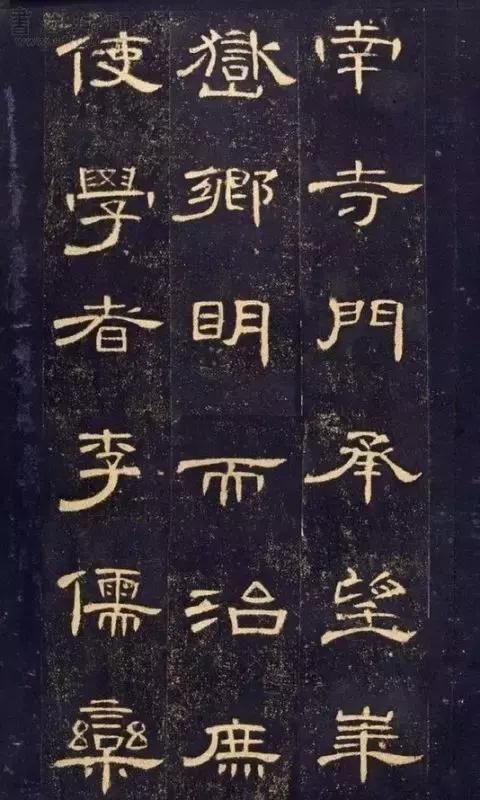 南寺門承望華
嶽鄉明而治庶
使學者李儒欒
書